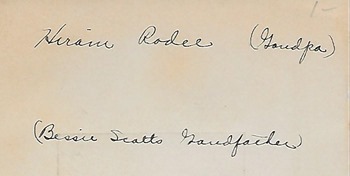 1-
Hiram Rodee (Grandpa)
(Bessie Scotts Grandfather)